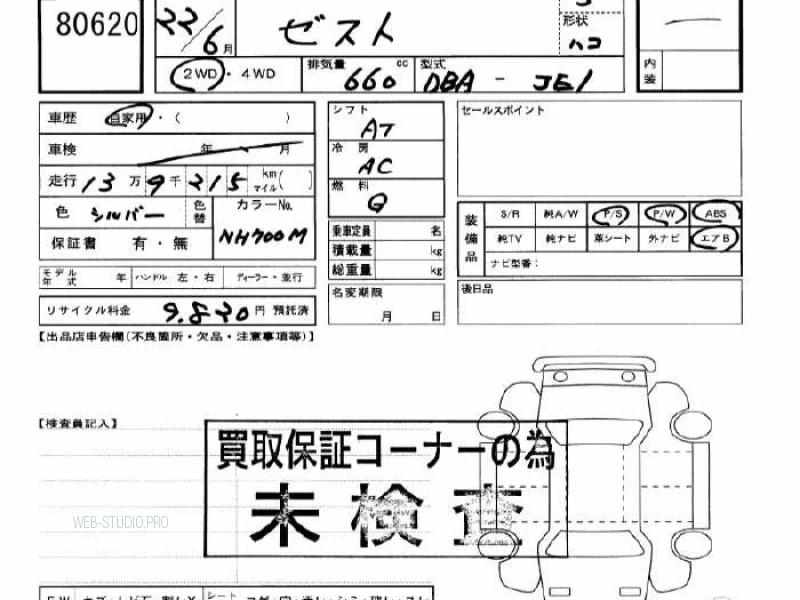 80620
22/6月 ゼスト 形状 ハコ
2WD・4WD 排気量 660 cc 型式 DBA - JE1
内装
車歴 自家用・( )
車検 年 月
走行 13万9千215 km マイル( )
色 シルバー 色替 カラーNo. NH700M
保証書 有・無
モデル年式 年 ハンドル 左・右 ディーラー・並行
リサイクル料金 9.820 円 預託済
シフト AT
冷房 AC
燃料 G
乗車定員 名
積載量 kg
総重量 kg
名変期限
月 日
セールスポイント
装備品 S/R 純A/W P/S P/W ABS
純TV 純ナビ 革シート 外ナビ エアB
ナビ型番:
後日品
【出品店申告欄(不良箇所・欠品・注意事項等)】
【検査員記入】
買取保証コーナーの為
未検査
WEB-STUDIO.PRO